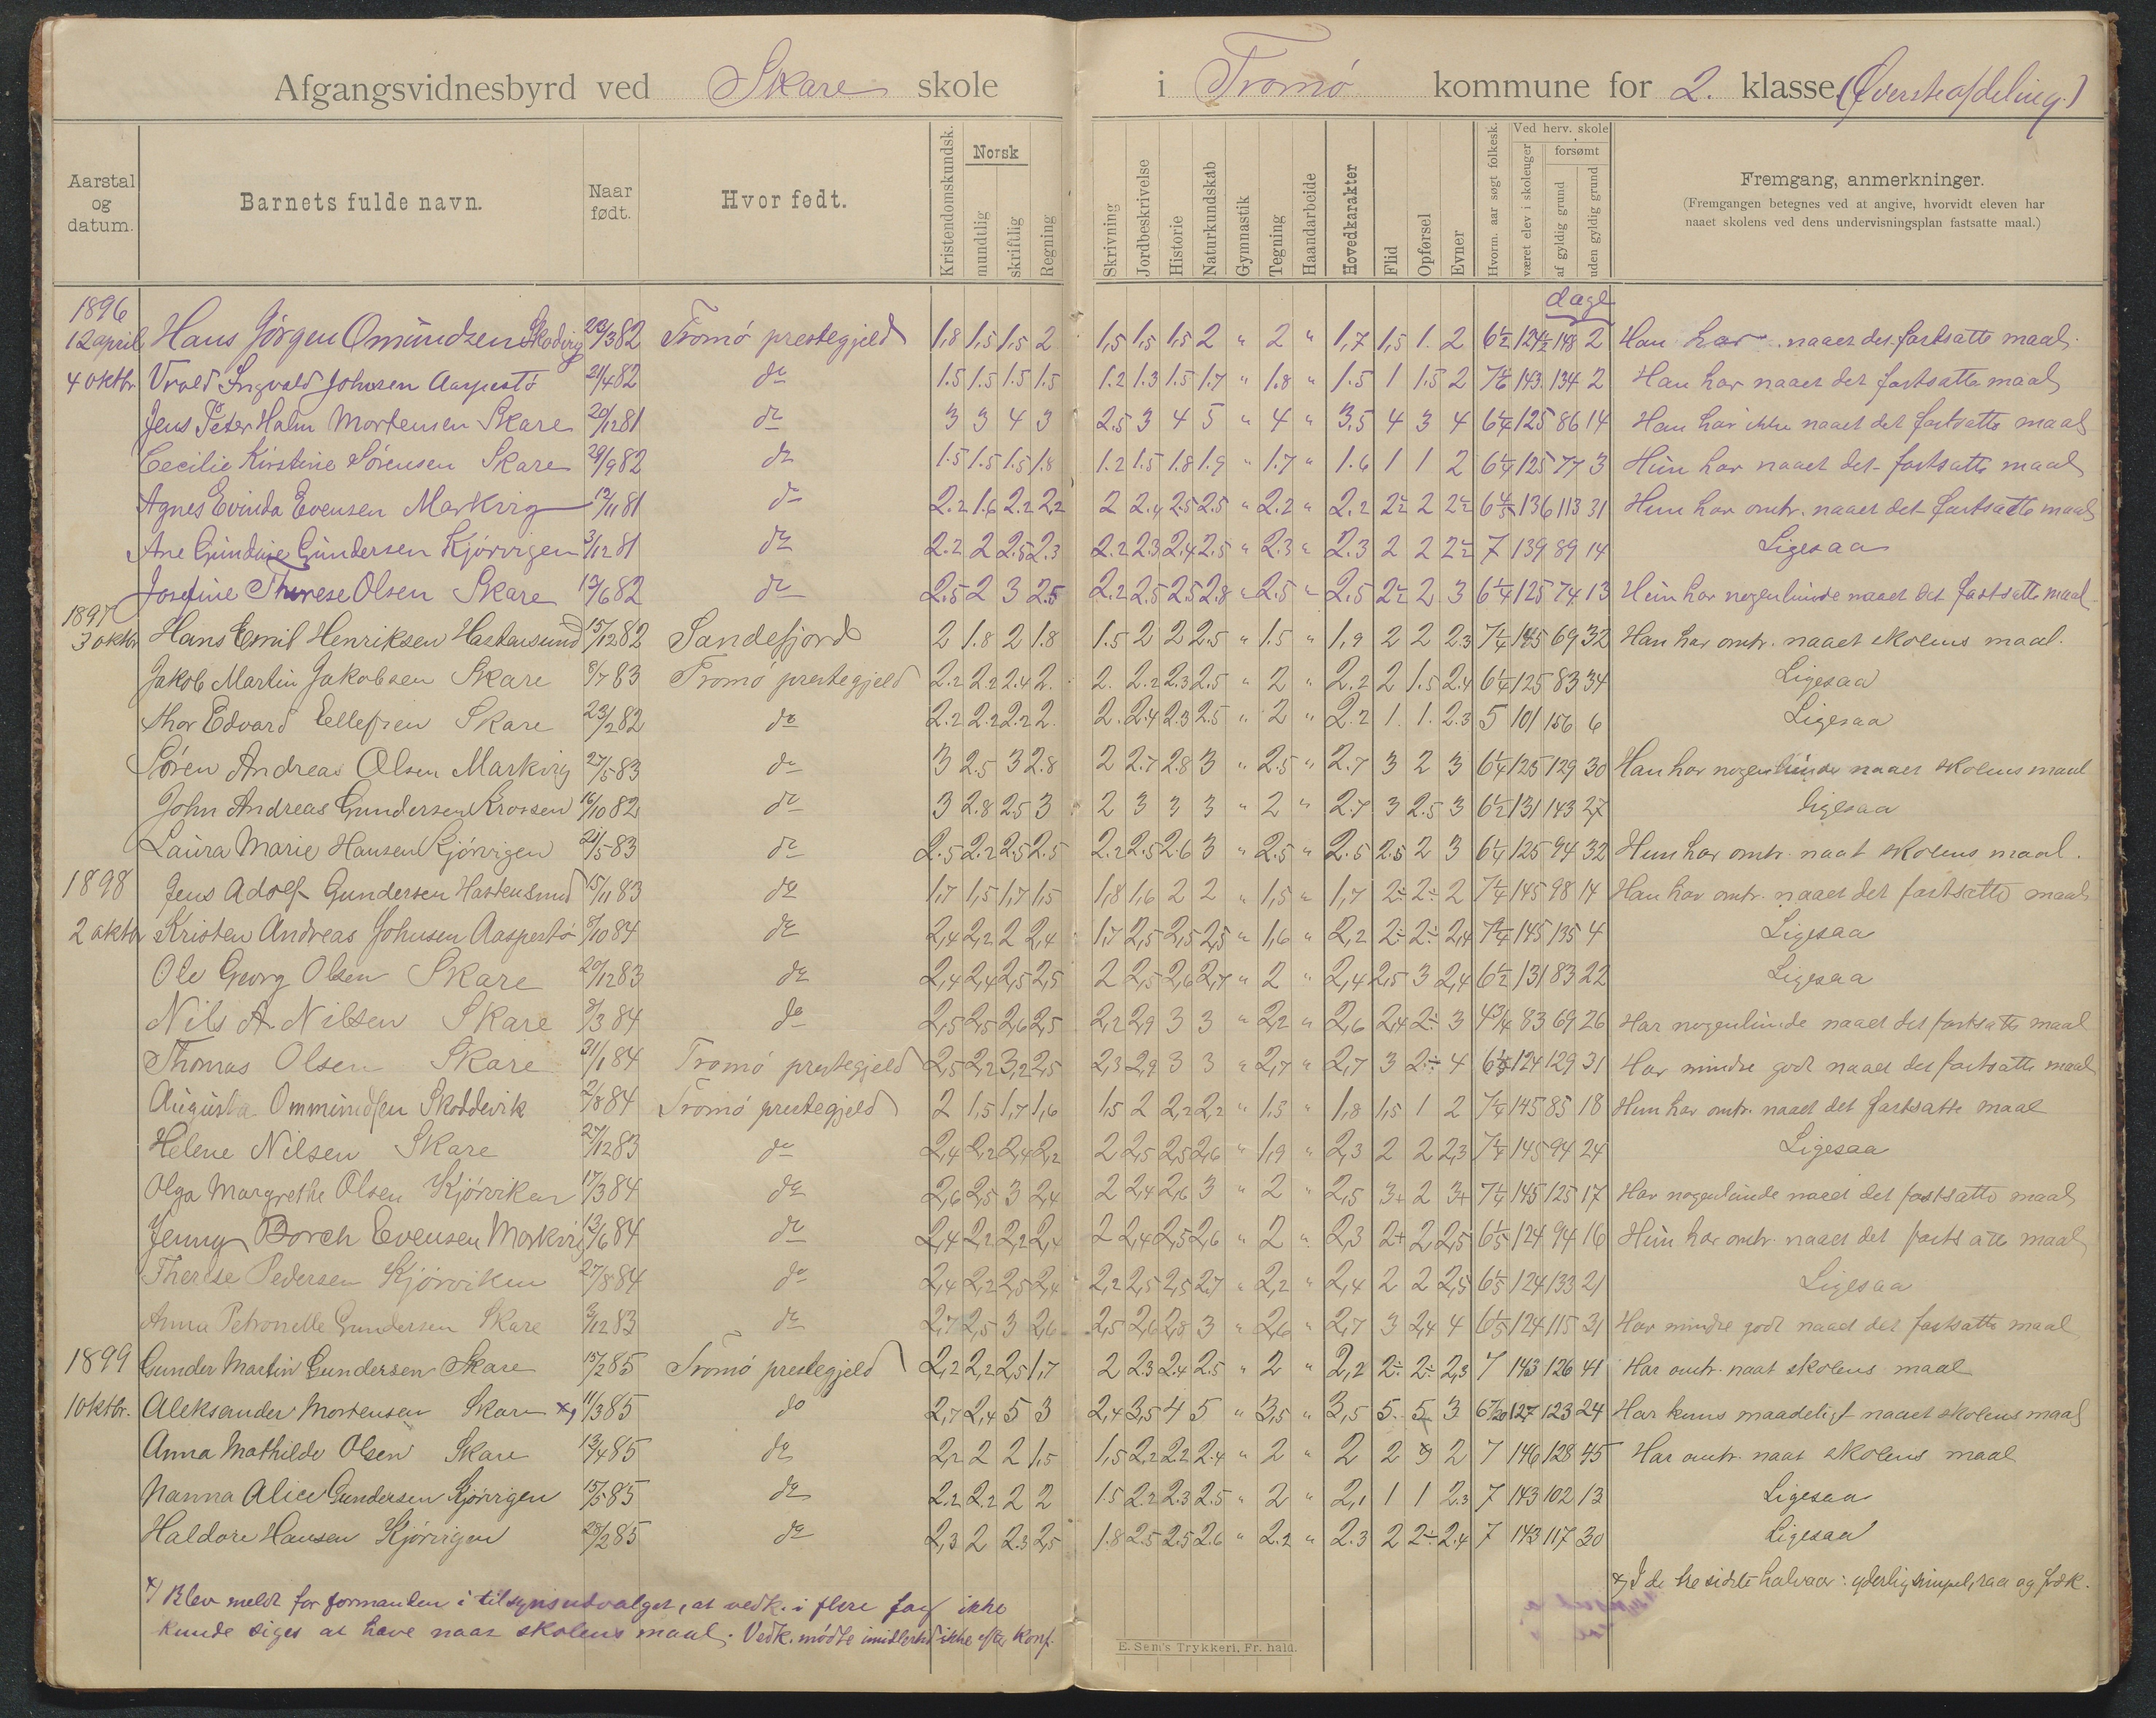 Afgangsvidnesbyrd ved Skare skole i Tromø kommune for 2. klasse (Øverste afdeling.)
Aarstal og datum. Barnets fulde navn. Naar født. Hvor født. Kristendomskundsk. Norsk mundtlig skriftlig Regning Skrivning Jordbeskrivelse Historie Naturkundskab Gymnastik Tegning Haandarbeide Hovedkarakter Flid Opførsel Evner Hvorm. aar søgt folkesk. Ved herv. skole været elev i skoleuger forsømt af gyldig grund uden gyldig grund Fremgang, anmerkninger.
(Fremgangen betegnes ved at angive, hvorvidt eleven har
naaet skolens ved dens undervisningsplan fastsatte maal.)
dage
1896
12 april Hans Jørgen Omundsen Skodvig 23/3 82 Tromø prestegjeld 1,8 1,5 1,5 2 1,5 1,5 1,5 2 " 2 " 1,7 1,5 1. 2 6 1/2 124 1/2 148 2 Han har naaet det fastsatte maal.
4 oktbr Ingvald Johnsen Aaspestø 21/4 82 do 1.5 1.5 1.5 1.5 1.2 1.3 1.5 1.7 " 1.8 " 1.5 1 1.5 2 143 134 2 Han har naaet det fastsatte maal
Jens Peter Holm Mortensen Skare 20/12 81 do 3 3 4 3 2.5 3 4 5 " 4 " 3,5 4 3 4 6 1/4 125 86 14 Han har ikke naaet det fastsatte maal
Cecilie Kirstine Sørensen Skare 29/9 82 do 1.5 1.5 1.5 1.8 1.2 1.5 1.8 1.9 " 1.7 " 1.6 1 1 2 6 1/4 125 77 3 Hun har naaet det fastsatte maal
Agnes Evinda Evensen Markvig 12/11 81 do 2.2 1.6 2.2 2.2 2 2.4 2.5 2.5 " 2.2 " 2.2 2÷ 2 2÷ 136 113 31 Hun har omtr. naaet det fastsatte maal
Ane Gundersen Kjørvigen 3/12 81 do 2.2 2 2.5 2.3 2.2 2.3 2.4 2.5 " 2.3 " 2.3 2 2 2÷ 7 139 89 14 Ligesaa
Josefine Therese Olsen Skare 12/6 82 do 2.5 2 3 2.5 2.2 2.5 2.5 2.8 " 2.5 " 2.5 2÷ 2 3 6 1/4 125 74 13 Hun har nogenlunde naaet det fastsatte maal
1897
3 oktbr Hans Emil Henriksen Hastensund 15/12 82 Sandefjord 2 1.8 2 1.8 1.5 2 2 2.5 " 1.5 " 1,9 2 2 2.3 7 1/4 145 69 32 Han har omtr. naaet skolens maal.
Jakob Martin Jakobsen Skare 8/7 83 Tromø prestegjeld 2.2 2.2 2.4 2. 2. 2.2 2.3 2.5 " 2 " 2.2 2 1.5 2.4 6 1/4 125 83 34 Ligesaa
Thor Edvard Ellefsen Skare 23/2 82 do 2.2 2.2 2.2 2. 2. 2.4 2.3 2.5 " 2 " 2.2 1. 1. 2.3 5 101 156 6 Ligesaa
Søren Andreas Olsen Markvig 27/5 83 do 3 2.5 3 2.8 2 2.7 2.8 3 " 2.5 " 2.7 3 2 3 6 1/4 125 129 30 Han har nogenlunde naaet skolens maal
John Andreas Gundersen 16/10 82 do 3 2.8 2.5 3 2 3 3 3 " 2 " 2.7 3 2.5 3 6 1/2 131 143 27 ligesaa
Laura Marie Hansen Kjørvigen 21/5 83 do 2.5 2.2 2.5 2.5 2.2 2.5 2.6 3 " 2.5 " 2.5 2.5 2 3 6 1/4 125 94 32 Hun har omtr. naat skolens maal.
1898 Jens Adolf Gundersen Hastensund 15/11 83 do 1,7 1,5 1,7 1,5 1,8 1,6 2 2 " 1,5 " 1,7 2÷ 2÷ 2 7 1/4 145 98 14 Han har omtr. naaet det fastsatte maal
2 oktbr Kristen Andreas Johnsen Aaspestø 8/10 84 do 2,4 2,2 2 2,4 1,7 2,5 2,5 2,5 " 1,6 " 2,2 2÷ 2÷ 2,4 7 1/4 145 135 4 Ligesaa
Ole Georg Olsen Skare 20/12 83 do 2,4 2,4 2,5 2,5 2 2,5 2,6 2,7 " 2 " 2,4 2,5 3 2,4 6 1/2 131 83 22 Ligesaa
Nils A. Nilsen Skare 8/3 84 do 2,5 2,5 2,6 2,5 2,2 2,9 3 3 " 2,2 " 2,6 2,4 2÷ 3 4 3/4 83 69 26 Har nogenlunde naaet det fastsatte maal
Thomas Olsen Skare 31/1 84 Tromø prestegjeld 2,5 2,2 3,2 2,5 2,3 2,9 3 3 " 2,7 " 2,7 3 2÷ 4 6 1/5 124 129 31 Har mindre godt naaet det fastsatte maal
Augusta Ommundsen Skoddevik 2/8 84 Tromø prestegjeld 2 1,5 1,7 1,6 1,5 2 2,2 2,2 " 1,3 " 1,8 1,5 1 2 7 1/4 145 85 18 Hun har omtr. naaet det fastsatte maal
Helene Nilsen Skare 27/12 83 do 2,4 2,2 2,4 2,2 2 2,5 2,5 2,6 " 1,9 " 2,3 2 2 2,3 7 1/4 145 94 24 Ligesaa
Olga Margrethe Olsen Kjørviken 17/3 84 do 2,6 2,5 3 2,4 2 2,4 2,6 3 " 2 " 2,5 3+ 2 3+ 7 1/4 145 125 17 Har nogenlunde naaet det fastsatte maal
Jenny Borch Evensen Markvig 13/6 84 do 2,4 2,2 2,2 2,4 2 2,4 2,5 2,6 " 2 " 2,3 2+ 2 2,5 6 1/5 124 94 16 Hun har omtr. naaet det fastsatte maal
Therese Pedersen Kjørviken 27/8 84 do 2,4 2,2 2,5 2,4 2,2 2,5 2,5 2,7 " 2,2 " 2,4 2 2 2,5 6 1/5 124 133 21 Ligesaa
Anna Petronelle Gundersen Skare 3/12 83 do 2,7 2,5 3 2,6 2,5 2,6 2,8 3 " 2,6 " 2,7 3 2,4 4 6 1/5 124 115 31 Har mindre godt naaet det fastsatte maal
1899 Gunder Martin Gundersen Skare 15/2 85 Tromø prestegjeld 2,2 2,2 2,5 1,7 2 2.3 2.4 2.5 " 2 " 2,2 2÷ 2÷ 2,3 7 143 126 41 Har omtr. naat skolens maal
1 oktbr. Aleksander Mortensen Skare x) 11/3 85 do 2,7 2,4 5 3 2,4 3,5 4 5 " 3,5 " 3,5 5. 5 3 6 7/20 127 123 24 Har kuns maadeligt naaet skolens maal
Anna Mathilde Olsen Skare 13/4 85 do 2,2 2 2 1,5 1,5 2,2 2.2 2.4 " 2 " 2 2 2 7 146 128 45 Har omtr. naat skolens maal
Nanna Alice Gundersen Kjørvigen 15/5 85 do 2.2 2.2 2 2 1.5 2.2 2.3 2.5 " 2 " 2,1 1 1 2.3 7 143 102 13 Ligesaa
Haldore Hansen Kjørvigen 28/2 85 do 2,3 2 2.3 2,5 1.8 2.5 2.5 2.6 " 2.2 " 2.3 2 2÷ 2.4 7 143 117 30 Ligesaa
x) I de tre sidste halvaar: yderlig simpel, raa og fræk.
x) Blev meldt for formanden i tilsynsudvalget, at vedk. i flere fag ikke
kunde siges at have naat skolens maal. Vedk. mødte imidlertid ikke efter konf.
E. Sem's Trykkeri, Fr. hald.